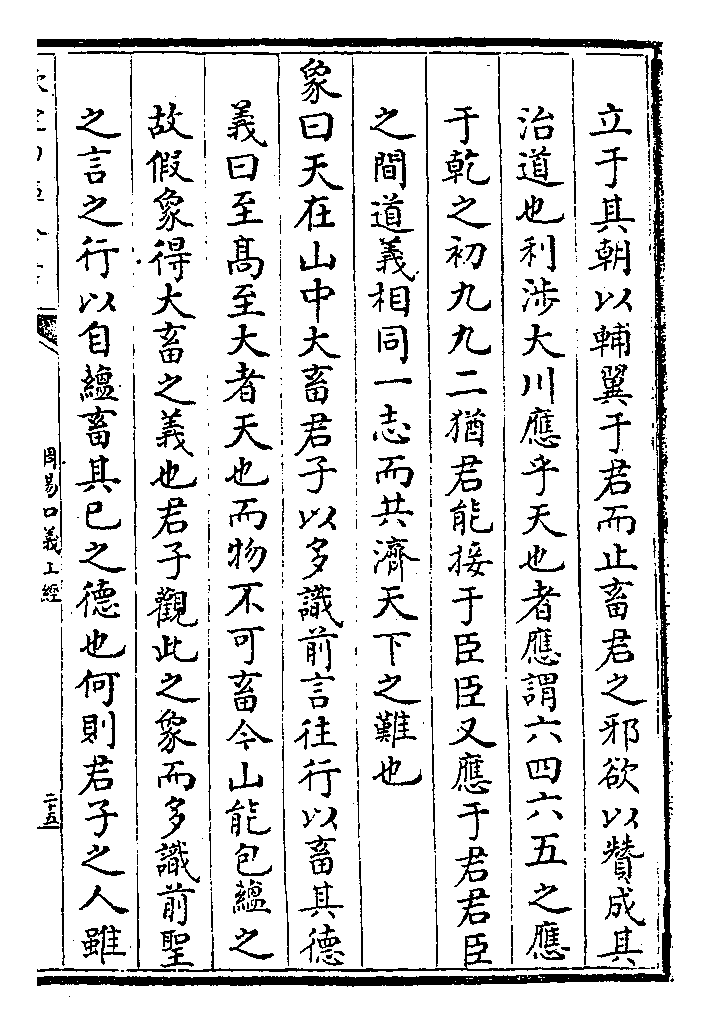 立于其朝以輔翼于君而止畜君之邪欲以贊成其
治道也利涉大川應乎天也者應謂六四六五之應
于乾之初九九二猶君能接于臣臣又應于君君臣
之間道義相同一志而共濟天下之難也
象曰天在山中大畜君子以多識前言往行以畜其德
義曰至髙至大者天也而物不可畜今山能包藴之
故假象得大畜之義也君子觀此之象而多識前聖
之言之行以自藴畜其已之德也何則君子之人雖
周易口義上經
二十五